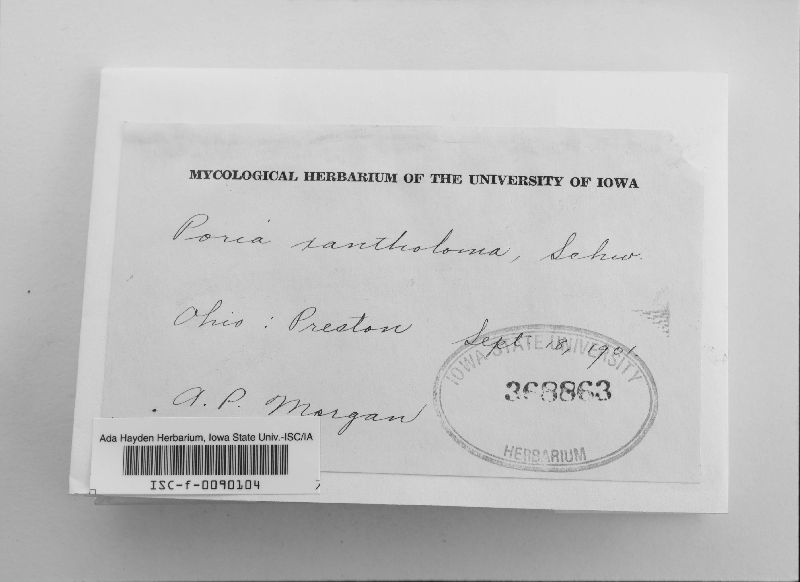 MYCOLOGICAL HERBARIUM OF THE UNIVERSITY OF IOWA
Poria xantholoma, Schw.
Ohio : Preston Sept 18, 1901.
IOWA STATE UNIVERSITY
368863
HERBARIUM
A. P. Morgan
Ada Hayden Herbarium, Iowa State Univ.-ISC/IA
ISC-f-0090104